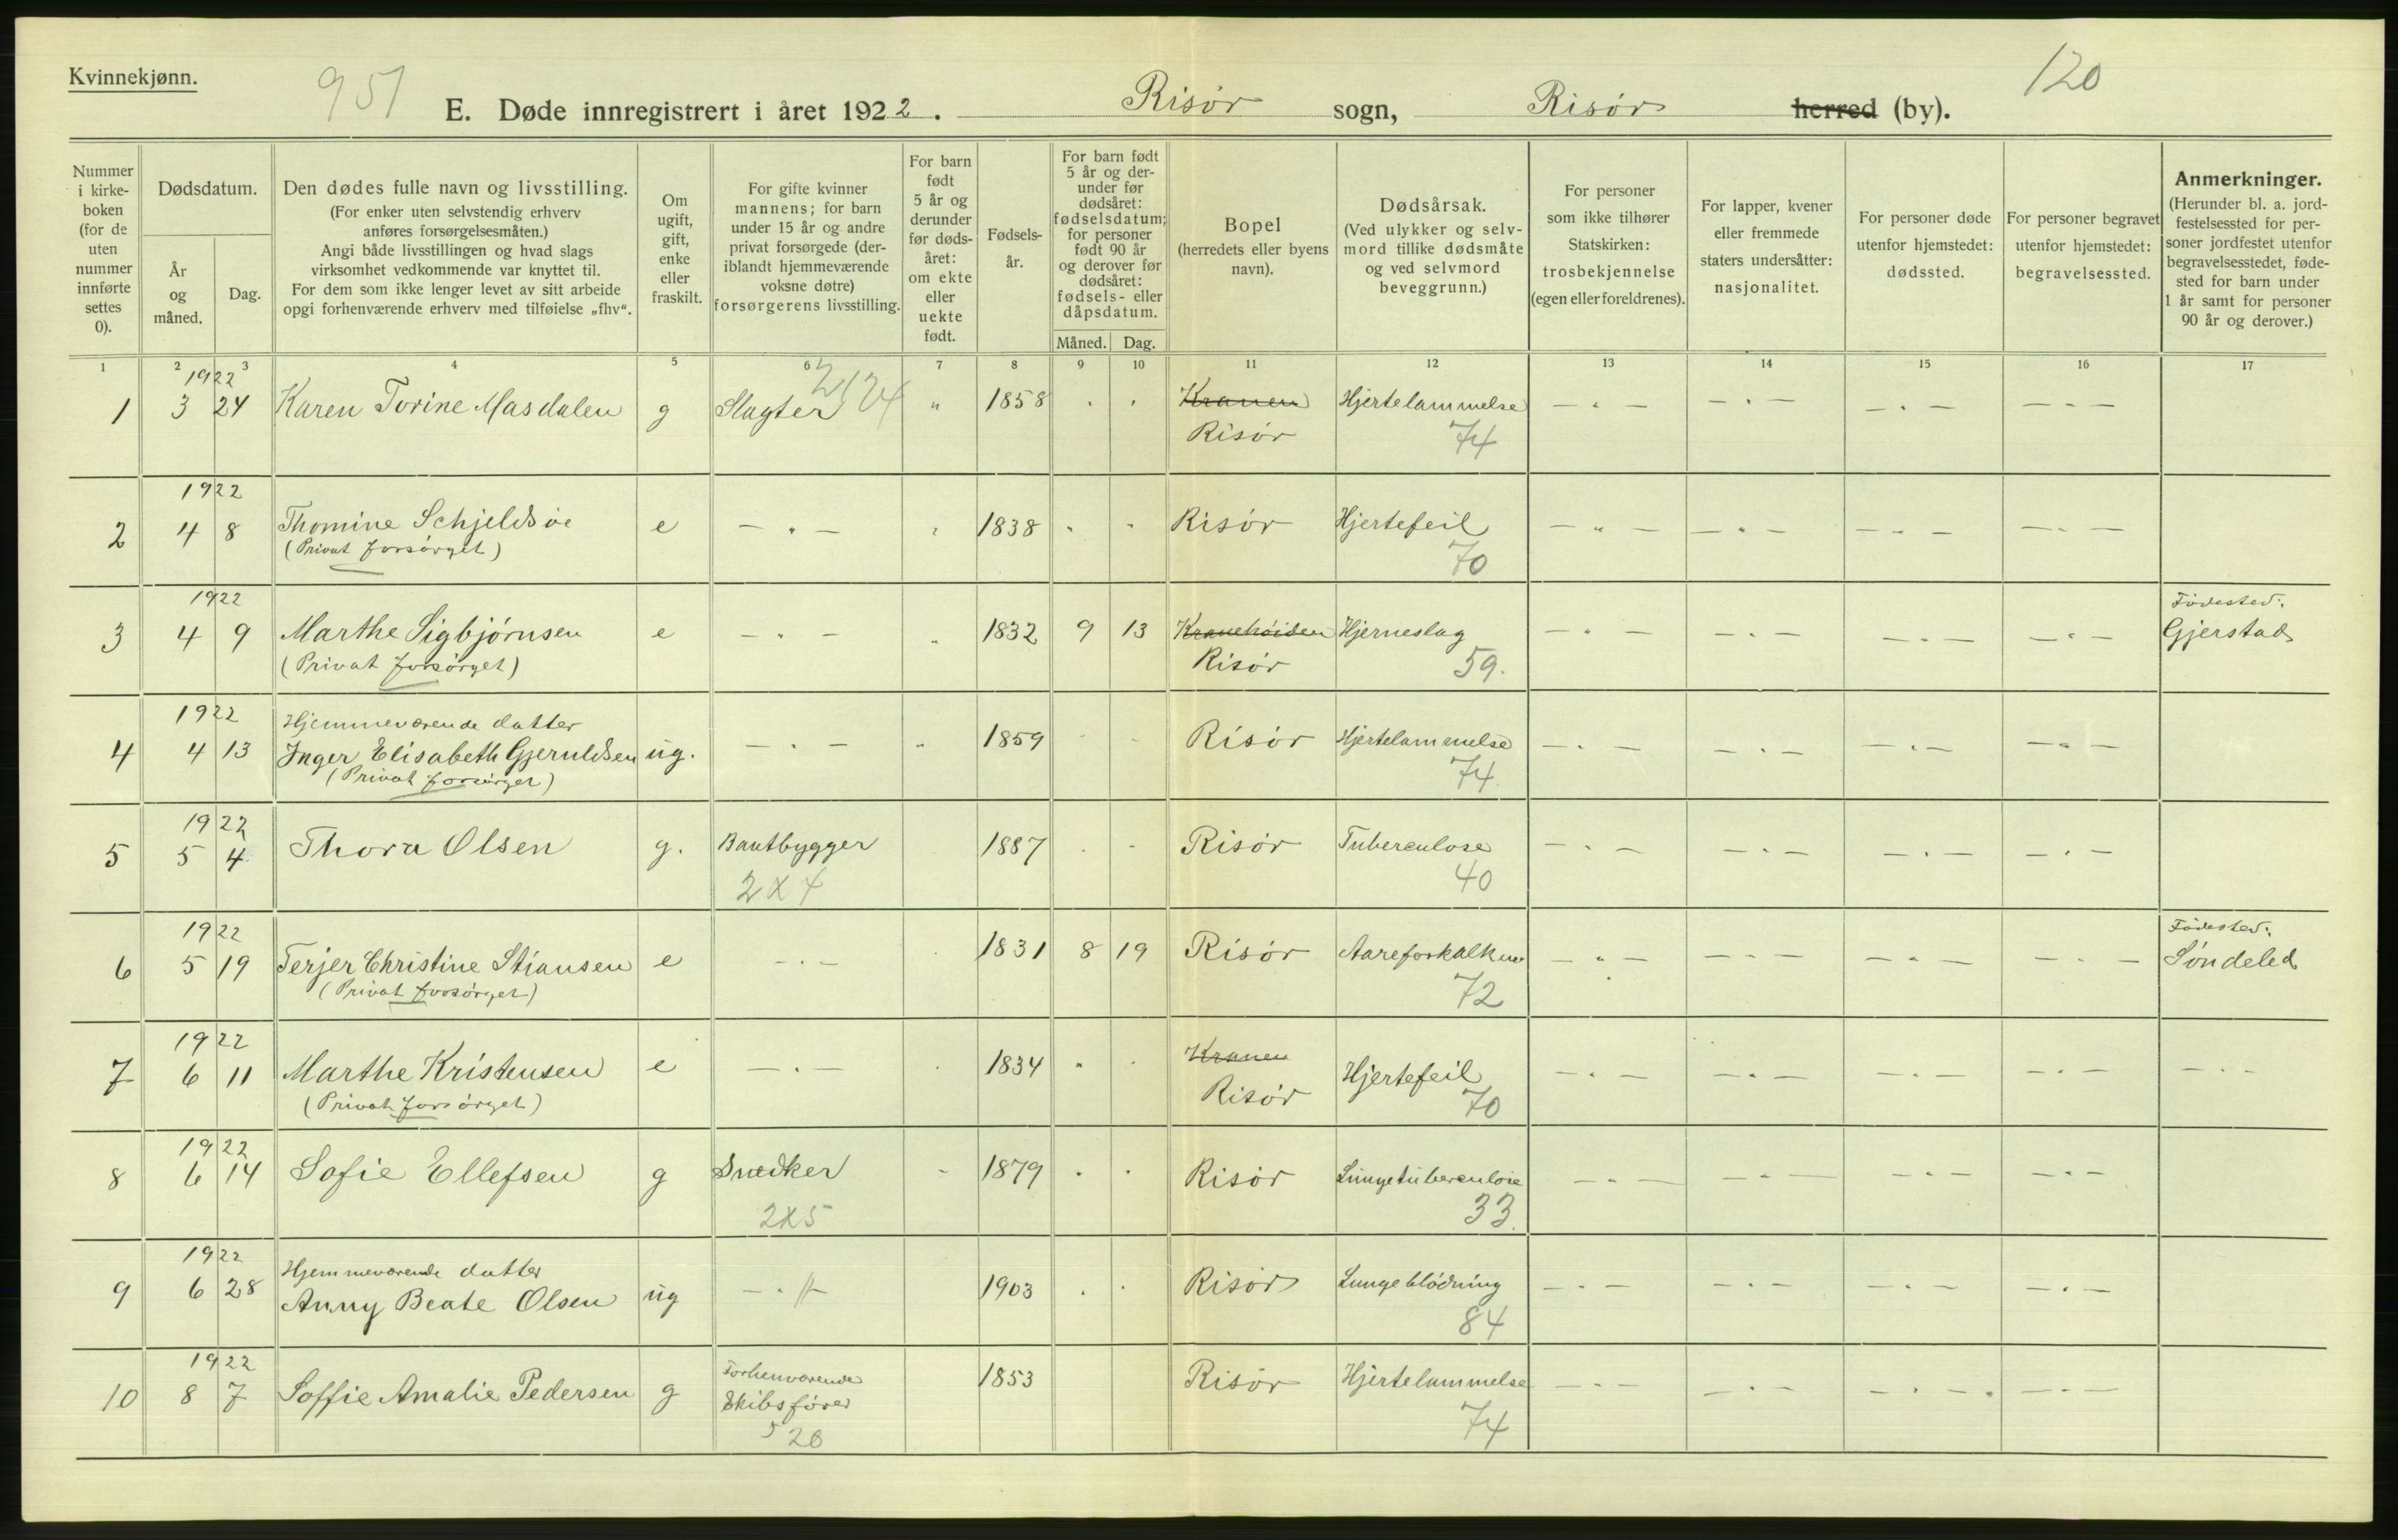 Kvinnekjønn.
951
120
E. Døde innregistrert i året 1922. Risør sogn, Risør herred (by).
Nummer i kirkeboken (for de uten nummer innførte settes 0).
Dødsdatum.
År og måned.
Dag.
Den dødes fulle navn og livsstilling.
(For enker uten selvstendig erhverv
anføres forsørgelsesmåten.)
Angi både livsstillingen og hvad slags
virksomhet vedkommende var knyttet til.
For dem som ikke lenger levet av sitt arbeide
opgi forhenværende erhverv med tilføielse „fhv“.
Om ugift, gift, enke eller fraskilt.
For gifte kvinner
mannens; for barn
under 15 år og andre
privat forsørgede (der-
iblandt hjemmeværende
voksne døtre)
forsørgerens livsstilling.
For barn
født
5 år og
derunder
før døds-
året:
om ekte
eller
uekte
født.
Fødsels-
år.
For barn født
5 år og der-
under før
dødsåret:
fødselsdatum;
for personer
født 90 år
og derover før
dødsåret:
fødsels- eller
dåpsdatum.
Måned. Dag.
Bopel
(herredets eller byens
navn).
Dødsårsak.
(Ved ulykker og selv-
mord tillike dødsmåte
og ved selvmord
beveggrunn.)
For personer
som ikke tilhører
Statskirken:
trosbekjennelse
(egen eller foreldrenes).
For lapper, kvener
eller fremmede
staters undersåtter:
nasjonalitet.
For personer døde
utenfor hjemstedet:
dødssted.
For personer begravet
utenfor hjemstedet:
begravelsessted.
Anmerkninger.
(Herunder bl. a. jord-
festelsessted for per-
soner jordfestet utenfor
begravelsesstedet, føde-
sted for barn under
1 år samt for personer
90 år og derover.)
1 2 3 4 5 6 7 8 9 10 11 12 13 14 15 16 17
1922
1 3 24 Karen Torine Masdalen g Slagter " 1858 Kranen Hjertelammelse — " — — " — — " — — " —
Risør 74
1922
2 4 8 Thomine Schjeldsøe e — " — 1838 Risør Hjertefeil — " — — " — — " — — " —
(Privat forsørget) 70
1922 Fødested:
3 4 9 Marthe Sigbjørnsen e — " — 1832 9 13 Kranehøiden Hjerneslag — " — — " — — " — — " — Gjerstad
(Privat forsørget) Risør 59.
1922 Hjemmeværende datter
4 4 13 Inger Elisabeth Gjeruldsen ug. — " — 1859 Risør Hjertelammelse — " — — " — — " — — " —
(Privat forsørget) 74
1922
5 5 4 Thora Olsen g. Baatbygger 1887 Risør Tuberculose — " — — " — — " — — " —
2X4 40
1922 Fødested:
6 5 19 Terjer Christine Stiansen e — " — 1831 8 19 Risør — " — — " — — " — — " — Søndeled
(Privat forsørget) 72
1922 Kranen
7 6 11 Marthe Kristensen e — " — 1834 Risør Hjertefeil — " — — " — — " — — " — — " —
(Privat forsørget) 70
1922
8 6 14 Sofie Ellefsen g Snedker 1879 Risør Lungetuberculose — " — — " — — " — — " —
2X5 33.
1922 Hjemmeværende datter
9 6 28 Anny Beate Olsen ug 1903 Risør Lungeblødning — " — — " — — " — — " —
84
1922 Forhenværende
10 8 7 Soffie Amalie Pedersen g Skibsfører 1853 Risør Hjertelammelse — " — — " — — " — — " —
74